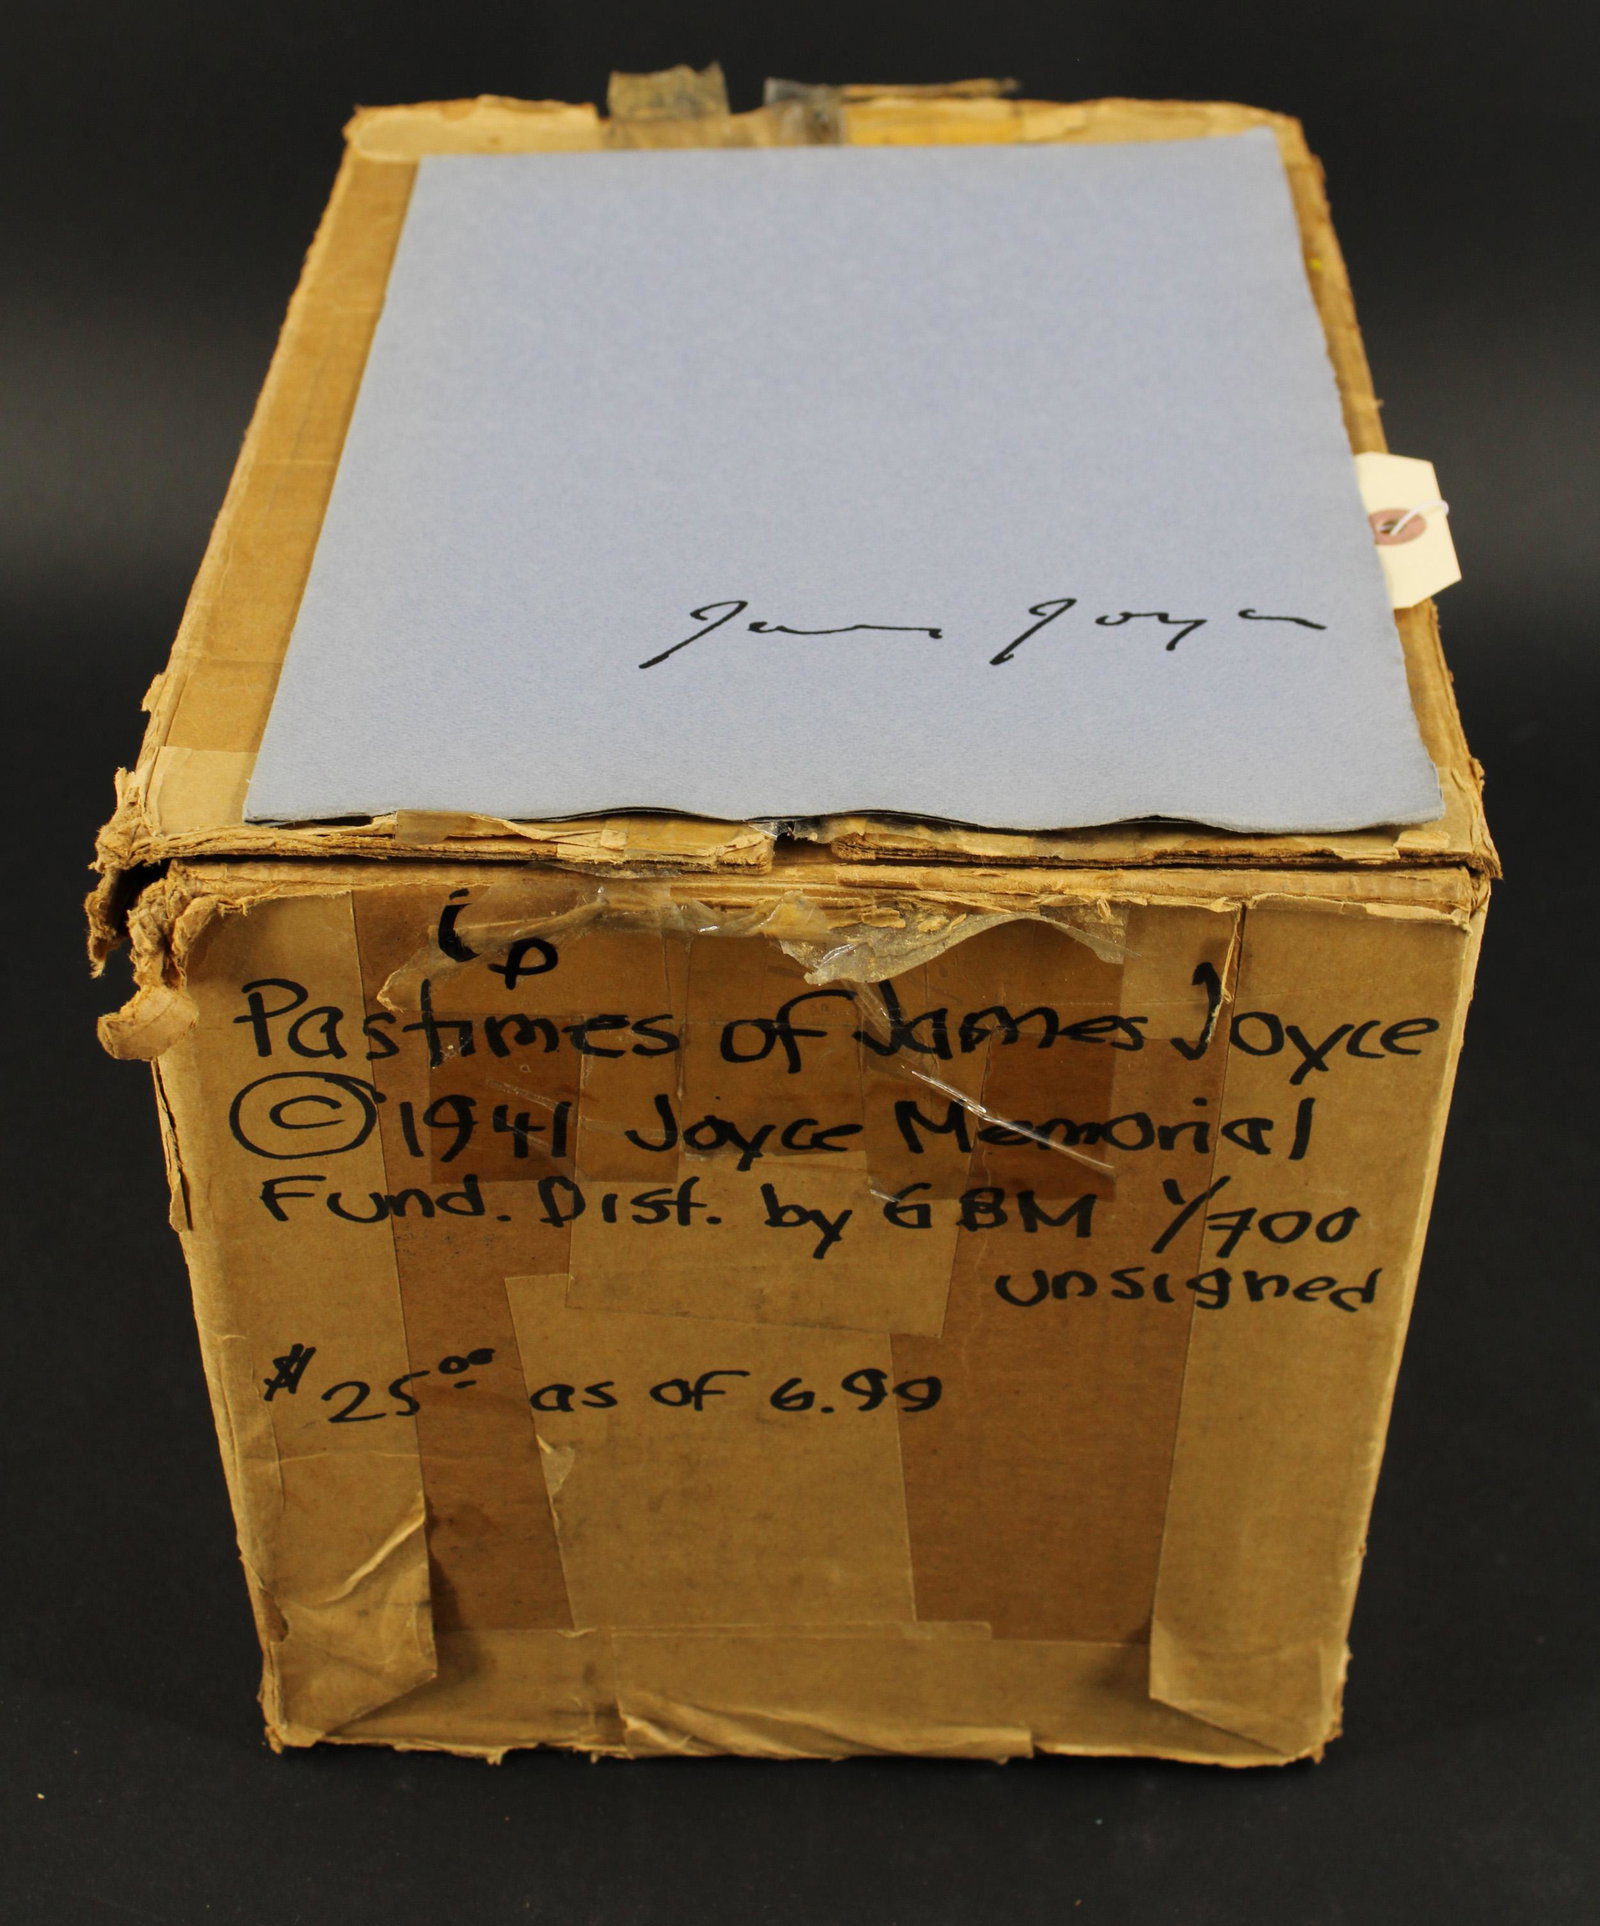 James Joyce
ip
Pastimes of James Joyce
© 1941 Joyce Memorial
Fund. Dist. by GBM 1/700
unsigned
$25.00 as of 6.99